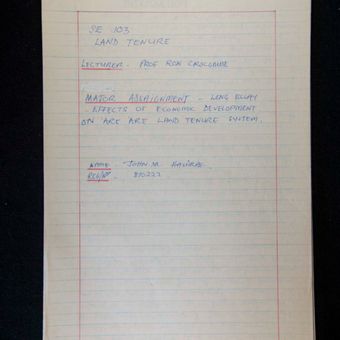 SE 103
LAND TENURE
LECTURER - PROF RON CROCOMBE
MAJOR ASSIGNMENT - LONG ESSAY
- EFFECTS OF ECONOMIC DEVELOPMENT
ON 'ARE 'ARE LAND TENURE SYSTEM.
NAME - JOHN M
REG/Nº - 810222